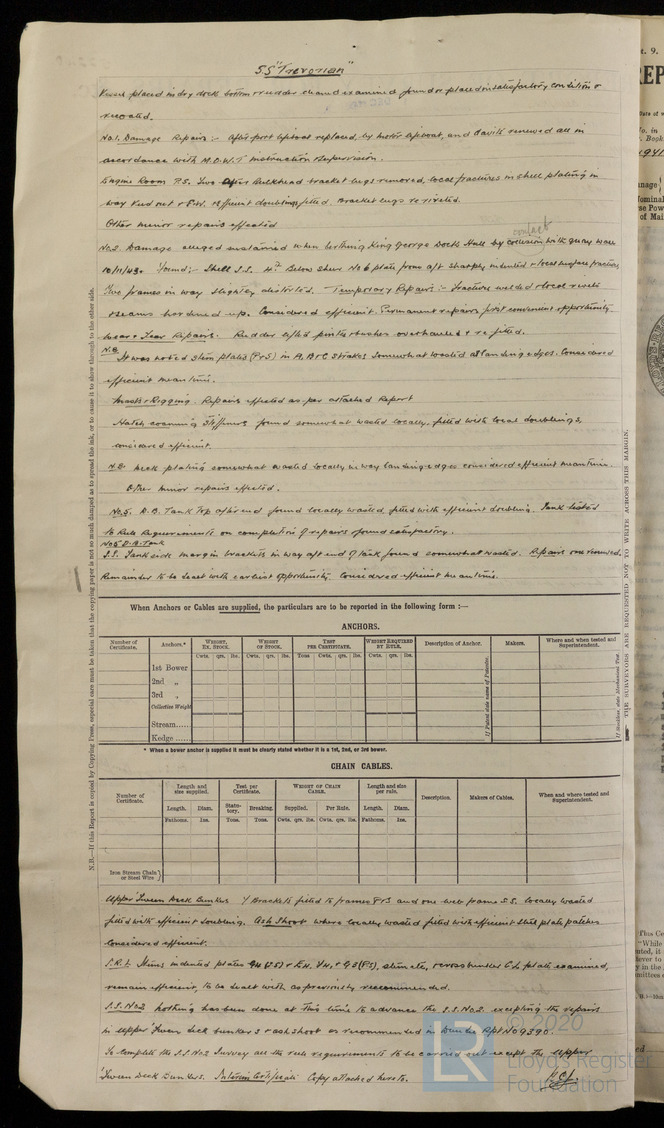 S.S "Trevorian"
Vessel placed in dry dock bottom & rudder cleaned examined found or placed in satisfactory condition &
recoated.
No.1. Damage Repairs :- After port lifeboat replaced, by motor lifeboat, and davits renewed all in
accordance with M.O.W.T instruction & supervision.
Engine Room P.S. Two after Bulkhead bracket lugs removed, local fractures in shell plating in
way veed out & E.W. efficient doublings fitted. Bracket lugs re riveted.
Other minor repairs effected
contact
No.2. Damage alleged sustained when berthing King George Dock Hull by collision with quay wall
10/11/43. Found:- Shell S.S. 4th Below sheer No 6 plate from aft sharply indented & local surface fractures
Two frames in way slightly distorted. Temporary Repairs:- Fracture welded & local rivets
& seams hardened up. Considered efficient. Permanent repairs first convenient opportunity
Wear & Tear Repairs. Rudder lifted pintles bushes overhauled & re fitted.
N.B.
It was noted stem plates (P&S) in A, B & C strakes somewhat wasted at landing edges. Considered
efficient meantime.
Masts & Rigging. Repairs effected as per attached Report
Hatch coaming stiffeners found somewhat wasted locally, fitted with local doublings,
considered efficient.
N.B. Deck plating somewhat wasted locally in way landing edges considered efficient meantime.
Other minor repairs effected.
No.5. D.B. Tank Top after end found locally wasted, fitted with efficient doubling. Tank tested
to Rule Requirements on completion of repairs found satisfactory.
No 5 D.B. Tank
S.S. Tank side margin brackets in way aft end of tank found somewhat wasted. Repairs one renewed.
Remainder to be dealt with earliest opportunity. Considered efficient meantime.
When Anchors or Cables are supplied, the particulars are to be reported in the following form :—
ANCHORS.
Number of Certificate. Anchors.* WEIGHT, EX. STOCK. WEIGHT OF STOCK. TEST PER CERTIFICATE. WEIGHT REQUIRED BY RULE. Description of Anchor. Makers. Where and when tested and Superintendent.
Cwts. qrs. lbs. Cwts. qrs. lbs. Tons Cwts. qrs. lbs. Cwts. qrs. lbs.
1st Bower
2nd „
3rd „
Collective Weight
Stream......
Kedge ......
If Patent state name of Patentee.
If Stockless, state Mechanical Test.
* When a bower anchor is supplied it must be clearly stated whether it is a 1st, 2nd, or 3rd bower.
CHAIN CABLES.
Number of Certificate. Length and size supplied. Test per Certificate. WEIGHT OF CHAIN CABLE. Length and size per rule. Description. Makers of Cables. When and where tested and Superintendent.
Length. Diam. Statutory. Breaking. Supplied. Per Rule. Length. Diam.
Fathoms. Ins. Tons. Tons. Cwts. qrs. lbs. Cwts. qrs. lbs. Fathoms. Ins.
Iron Stream Chain or Steel Wire
Upper Tween Deck Bunkers 7 Brackets fitted to frames P&S and one web frame S.S. locally wasted
fitted with efficient doubling. Ash Shoot where locally wasted fitted with efficient steel plate patches
considered efficient.
S.R.L. Items indented plates G4 (P.S) & E4, & G3 (P.S), cross bunker C.L. plate, examined,
remain efficient, to be dealt with as previously recommended.
S.S. No.2 Nothing has been done at this time to advance the S.S. No.2. excepting the repairs
in upper Tween deck bunkers & ash shoot as recommended in Dundee Rpt No 9390.
To complete the S.S No2 Survey all the rule requirements to be carried out except the Upper
Tween Deck Bunkers. Interim Certificate Copy attached hereto.
N.B.—If this Report is copied by Copying Press, especial care must be taken that the copying paper is not so much damped as to spread the ink, or to cause it to show through to the other side.
THE SURVEYORS ARE REQUESTED NOT TO WRITE ACROSS THIS MARGIN.
© 2020
Lloyd's Register
Foundation